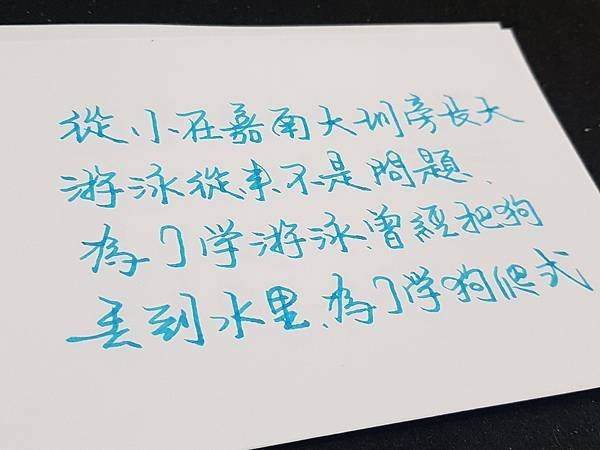 從小在嘉南大圳旁長大
游泳從来不是問題、
為了学游泳、曾經把狗
丟到水里、為了學狗爬式